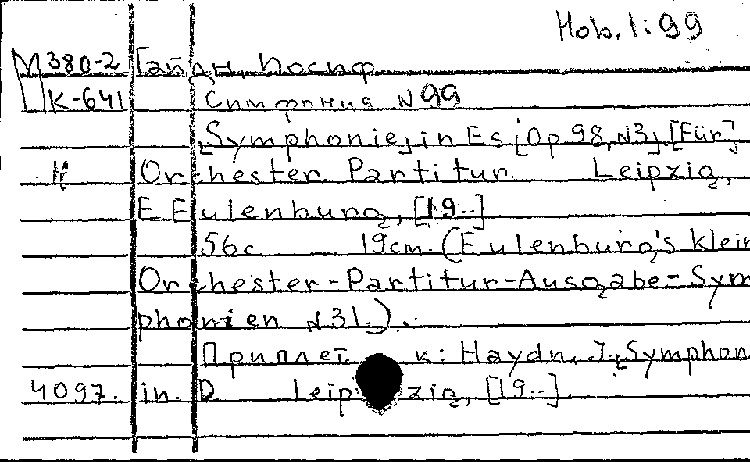 Hob. I: 99
М380-2 Гайдн, Иосиф
К-641 Симфония N 99
[Symphonie] in Es [Op 98, N3]. [Für]
Н Orchester. Partitur. Leipzig,
E Eulenburg, [19..]
56 с. 19 cm. (Eulenburg's klein
Orchester-Partitur-Ausgabe-Sym
phonien N31.).
Приплет. к: Haydn, J. [Symphon
4097. in. D Leipzig, [19..]